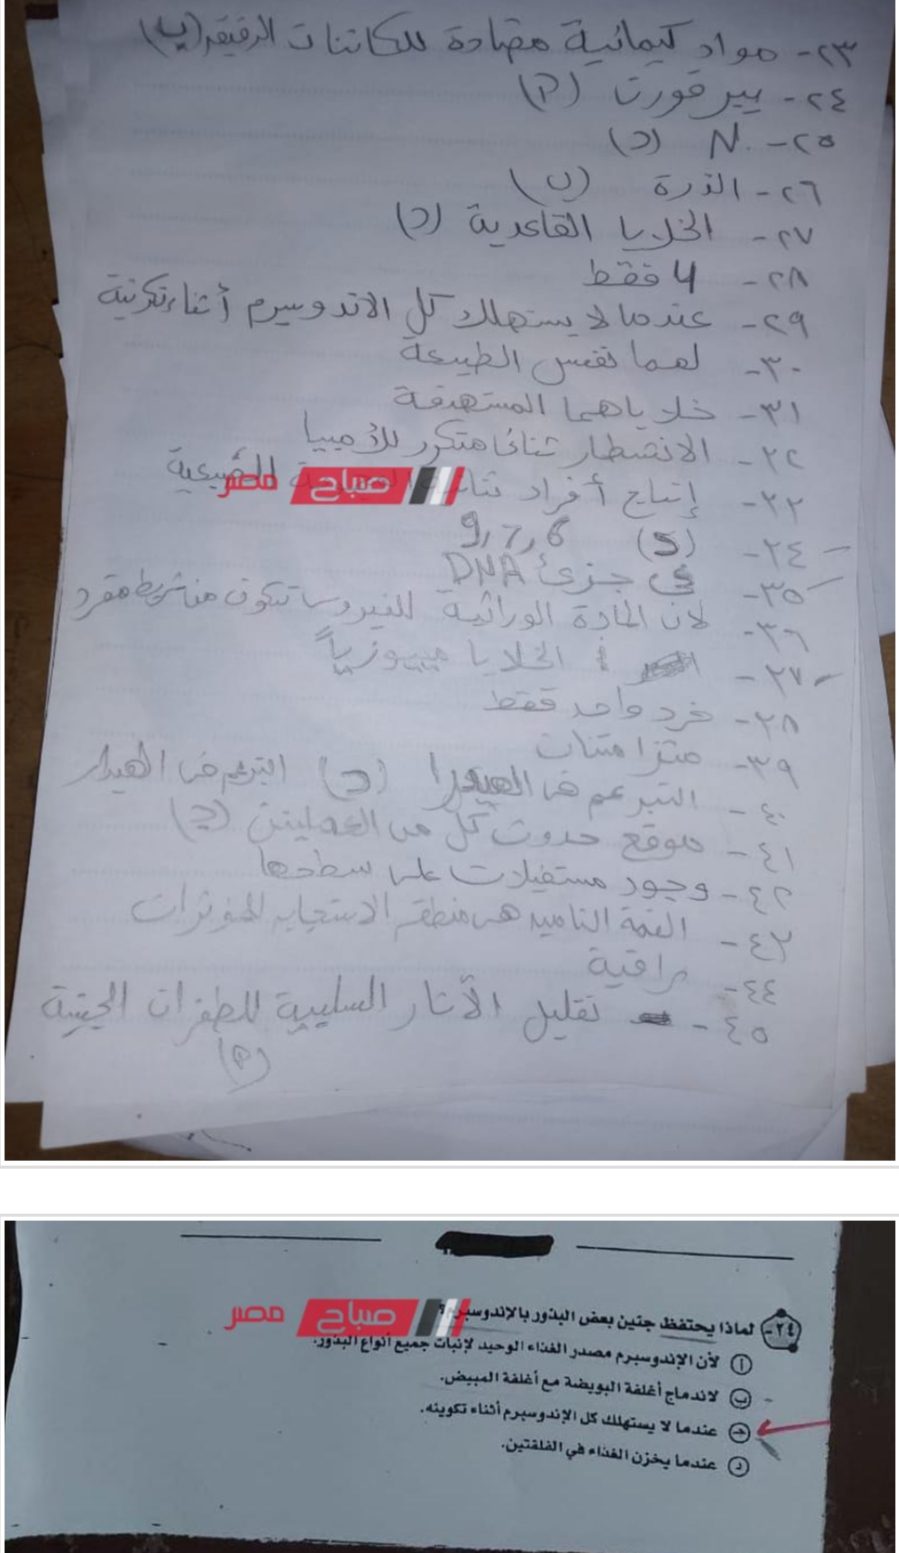 ٢٣- مواد كيمائية مضادة للكائنات الدقيقة (ب)
٢٤- بيرفورت (P)
٢٥- N (د)
٢٦- الذرة (ب)
٢٧- الخلايا القاعدية (د)
٢٨- 4 فقط
٢٩- عندما لا يستهلك كل الاندوسبرم أثناء تكوينه
٣٠- لهما نفس الطبيعة
٣١- خلاياهما المستهدفة
٣٢- الانشطار ثنائى متكرر للأميبيا
٣٣- إنتاج أفراد للطبيعية
صباح مصر
٣٤- (s) 9,7,6
٣٥- فى جزئ DNA
٣٦- لأن المادة الوراثية للفيروسا تتكون من شريط مفرد
٣٧- الخلايا ميوزياً
٣٨- فرد واحد فقط
٣٩- متزامنتان
٤٠- التبرعم فى الهيدرا (ج) التبرعم فى الهيدرا
٤١- موقع حدوث كل من العمليتين (ج)
٤٢- وجود مستقبلات على سطحها
٤٣- القمة الناميه هى منطقه الاستجابه للمؤثرات
٤٤- راقية
٤٥- تقليل الأثار السلبية للطفرات الجينية
(P)
صباح مصر
٢٤- لماذا يحتفظ جنين بعض البذور بالإندوسبرم؟
أ لأن الإندوسبرم مصدر الغذاء الوحيد لإنبات جميع أنواع البذور.
ب لاندماج أغلفة البويضة مع أغلفة المبيض.
جـ عندما لا يستهلك كل الإندوسبرم أثناء تكوينه.
د عندما يخزن الغذاء في الفلقتين.